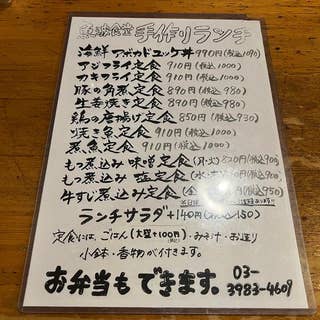 食堂 手作りランチ
海鮮アボカドユッケ丼 990円(税込1090)
アジフライ定食 910円(税込1000)
カキフライ定食 910円(税込1000)
豚の角煮定食 890円(税込980)
生姜焼き定食 890円(税込980)
鶏の唐揚げ定食 850円(税込930)
焼き魚定食 910円(税込1000)
煮魚定食 910円(税込1000)
もつ煮込み 味噌定食(月・火) 820円(税込900)
もつ煮込み 塩定食
牛すじ煮込み定食 950)
ランチサラダ +140円(税込150)
定食には、ごはん(大盛+100円)・みそ汁・お造り
小鉢・香物が付きます。
お弁当もできます。 03-
3983-4609